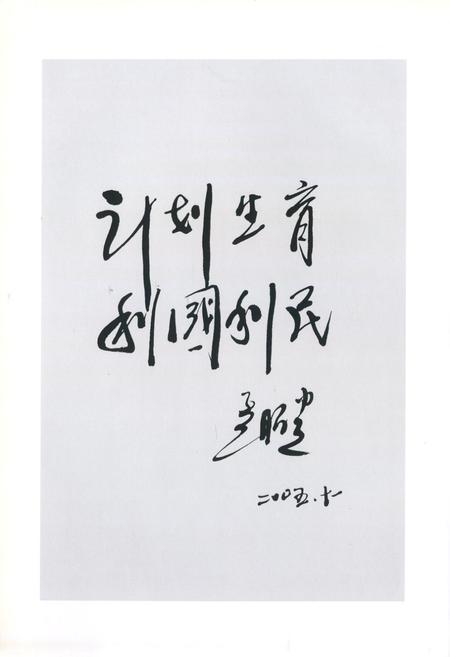 计划生育
利國利民
二〇〇五.十一